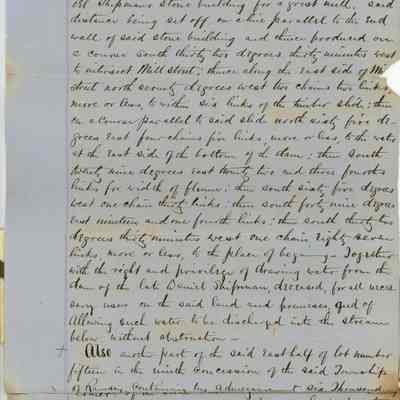 Shipmans stone building for a grist mill. said
distance being set off on a line parallel to the end
wall of said stone building and thence produced on
a course south thirty two degrees, thirty minutes west
to intersect Mill street; thence along the east side of Mill
street north seventy degrees west two chains two links,
more or less, to within six links of the timber slide; then
on a course parallel to said slide north sixty five de-
grees East four chains five links, more or less, to the water
at the East side of the bottom of the dam; then South
twenty nine degrees east twenty two and three fourths
links for width of flume; then south sixty five degrees
west one chain thirty links; then south forty nine degrees
east nineteen and one fourth links; then south thirty two
degrees thirty minutes west one chain eighty seven
links, more or less, to the place of beginning - Together
with the right and privilege of drawing water from the
dam of the late Daniel Shipman, deceased, for all neces-
sary uses on the said land and premises, and of
Allowing such water to be discharged into the stream
below without obstruction -
Also another part of the said East half of lot number
fifteen in the ninth concession of the said Township
of Ramsay, Containing by Admeasure + Six Thousand